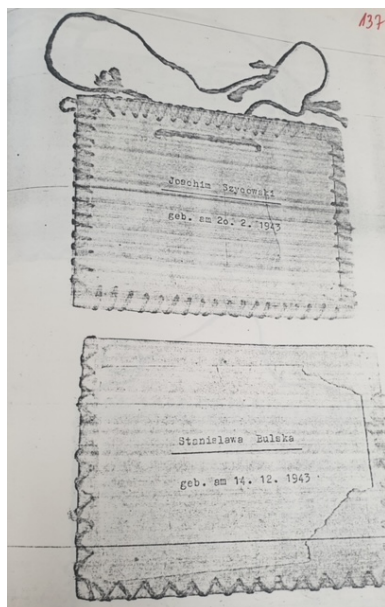 137
Joachim Szycowski
geb. am 20. 2. 1943
Stanislawa Bulska
geb. am 14. 12. 1943